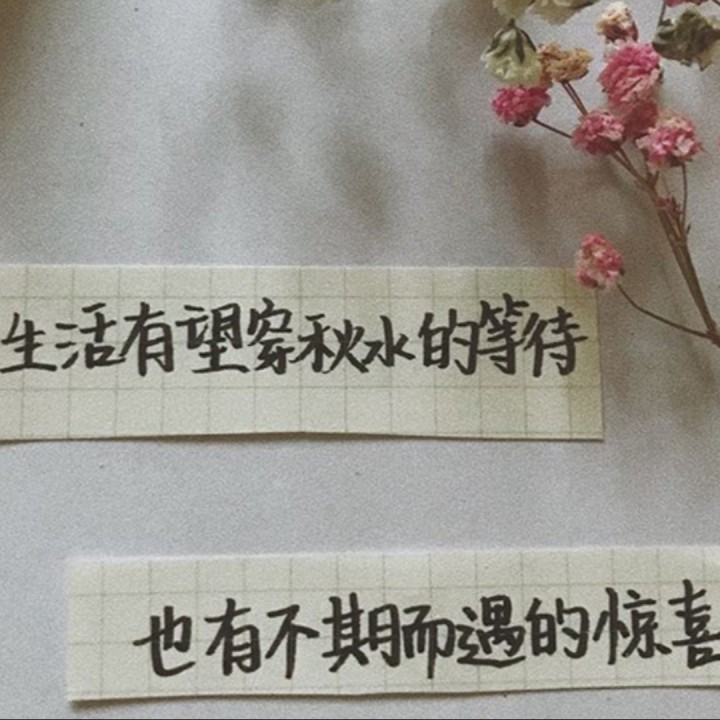 生活有望穿秋水的等待
也有不期而遇的惊喜